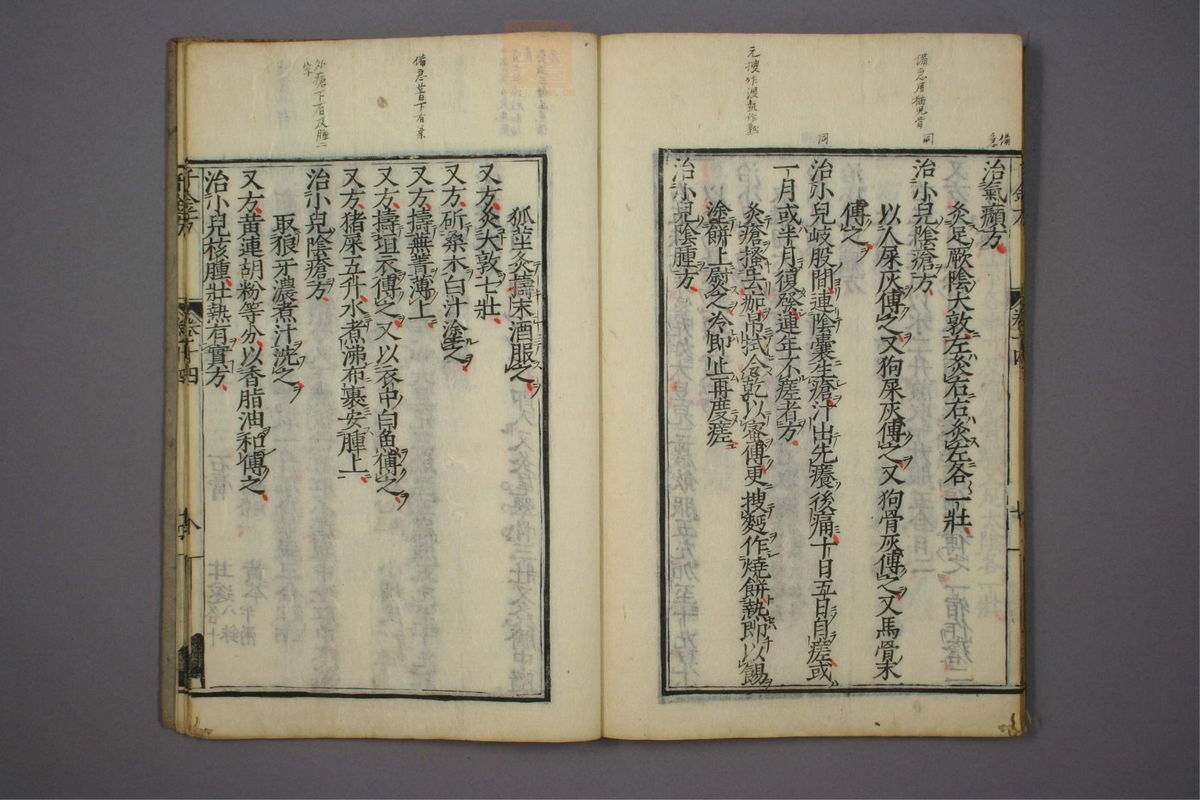 備急
治氣㿗方
灸足厥陰大敦左灸右右灸左各一壯
同
治小兒陰瘡方
以人屎灰傅之又狗屎灰傅之又狗骨灰傅之又馬骨末
傅之
同
治小兒岐股間連陰囊生瘡汁出先癢後痛十日五日自瘥或
一月或半月復發連年不瘥者方
灸瘡搔去痂帛拭令乾以蜜傅更搜麪作燒餅熱即以餳
塗餅上熨之冷即止再度瘥
治小兒陰腫方
狐莖灸擣末酒服之
又方灸大敦七壯
又方斫桑木白汁塗之
又方擣蕪菁薄上
又方擣垣衣傅之又以衣中白魚傅之
又方猪屎五升水煮沸布裹安腫上
治小兒陰瘡方
取狼牙濃煮汁洗之
又方黃連胡粉等分以香脂油和傅之
治小兒核腫壯熱有實方
千金方
卷二十四
八